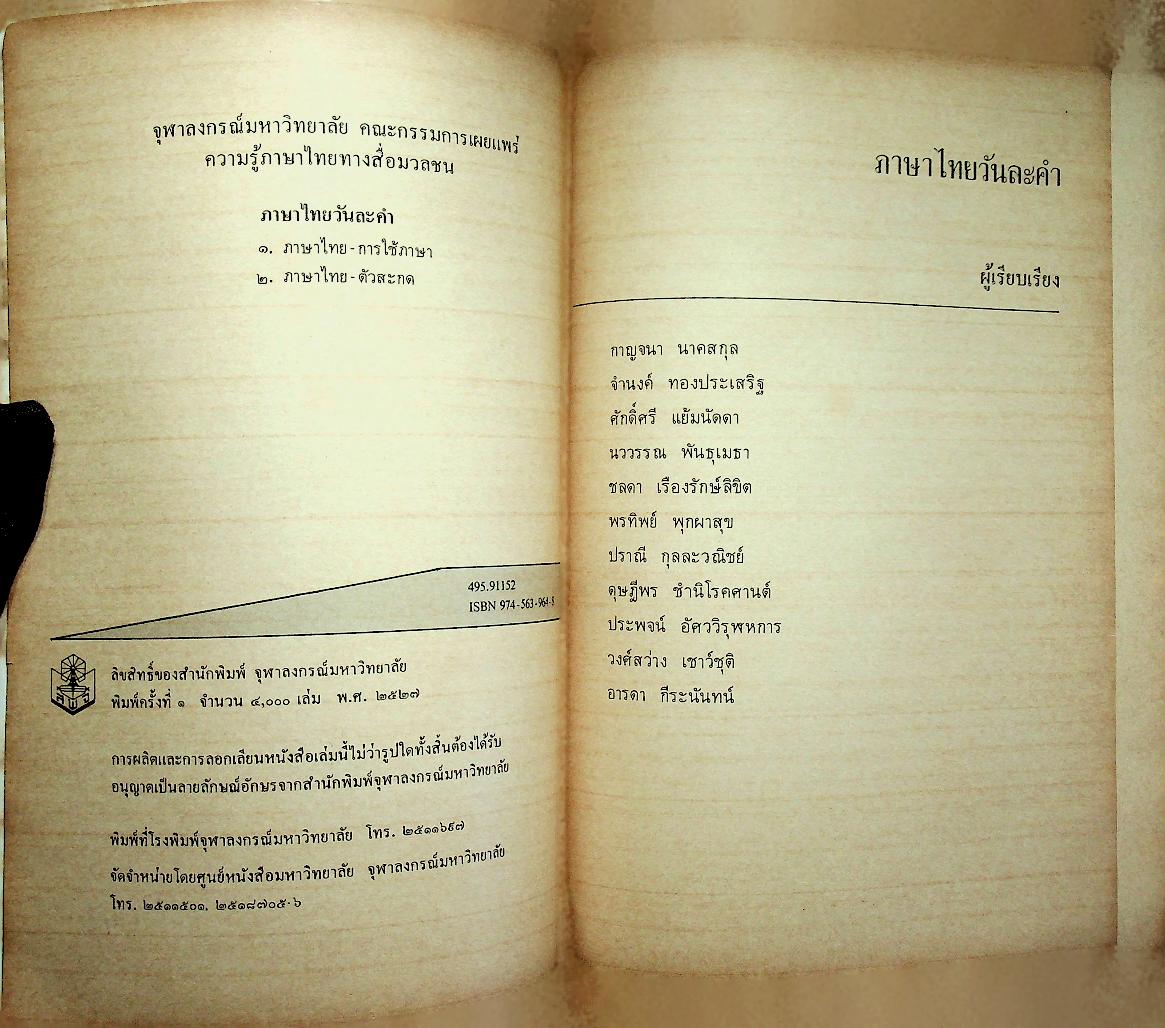 จุฬาลงกรณ์มหาวิทยาลัย คณะกรรมการเผยแพร่
ความรู้ภาษาไทยทางสื่อมวลชน
ภาษาไทยวันละคำ
๑. ภาษาไทย - การใช้ภาษา
๒. ภาษาไทย - ตัวสะกด
495.91152
ISBN 974-563-964-8
ลิขสิทธิ์ของสำนักพิมพ์ จุฬาลงกรณ์มหาวิทยาลัย
พิมพ์ครั้งที่ ๑ จำนวน ๔,๐๐๐ เล่ม พ.ศ. ๒๕๒๗
การผลิตและการลอกเลียนหนังสือเล่มนี้ไม่ว่ารูปใดทั้งสิ้นต้องได้รับ
อนุญาตเป็นลายลักษณ์อักษรจากสำนักพิมพ์จุฬาลงกรณ์มหาวิทยาลัย
พิมพ์ที่โรงพิมพ์จุฬาลงกรณ์มหาวิทยาลัย โทร. ๒๕๑๑๖๙๗
จัดจำหน่ายโดยศูนย์หนังสือมหาวิทยาลัย จุฬาลงกรณ์มหาวิทยาลัย
โทร. ๒๕๑๑๕๐๑, ๒๕๑๘๗๐๕-๖
ภาษาไทยวันละคำ
ผู้เรียบเรียง
กาญจนา นาคสกุล
จำนงค์ ทองประเสริฐ
ศักดิ์ศรี แย้มนัดดา
นววรรณ พันธุเมธา
ชลดา เรืองรักษ์ลิขิต
พรทิพย์ พุกผาสุข
ปราณี กุลละวณิชย์
ดุษฎีพร ชำนิโรคศานต์
ประพจน์ อัศววิรุฬหการ
วงศ์สว่าง เชาว์ชุติ
อารดา กีระนันทน์